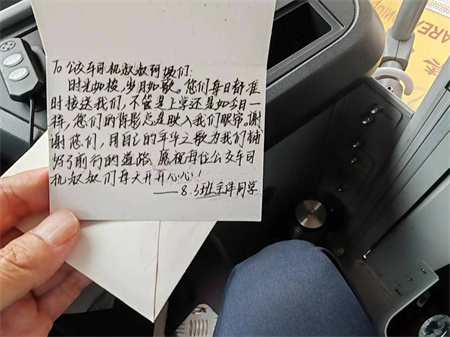 To 公交车司机叔叔阿姨们:
时光如梭,岁月如歌。您们每日都准
时接送我们,不管是上学还是如今日一
样,您们的背影总是映入我们眼帘。谢
谢您们,用自己的年华之歌为我们铺
好前行的道路。愿祝每位公交车司
机叔叔们每天开开心心!!
——8.3班全体同学
AREA